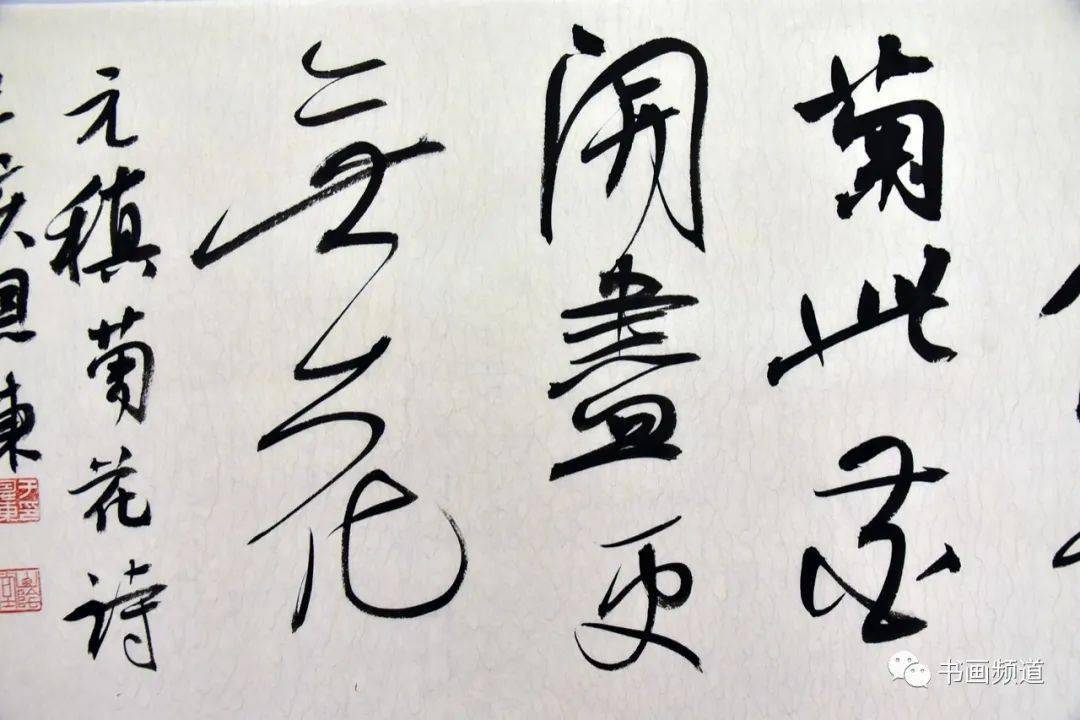 菊此花
開盡更
無花
元稹菊花詩
亥 東
书画频道